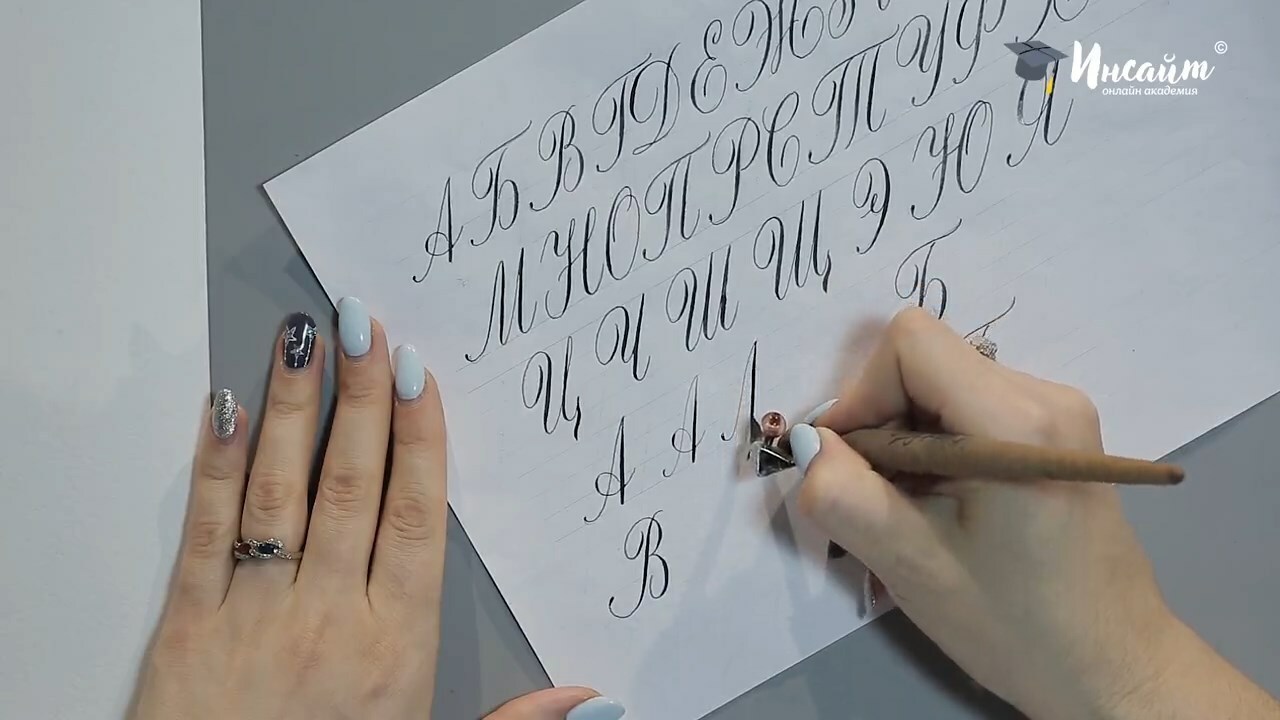 А Б В Г Д Е Ж
М Н О П Р С Т У Ф Х
Ц Ч Ш Щ Э Ю Я
А А Б
В
Инсайт ©
онлайн академия